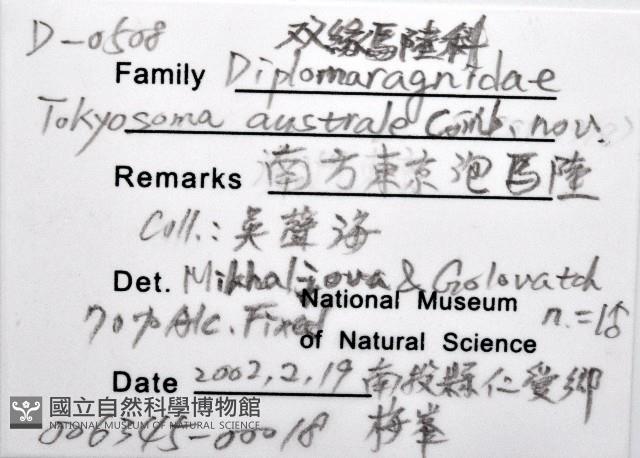 D-0508 双緣馬陸科
Family Diplomaragnidae
Tokyosoma australe Comb. nov.
Remarks 南方東京泡馬陸
Coll.: 吳聲海
Det. Mikhaljova & Golovatch
National Museum
70% Alc. Fixed n.=1♂
of Natural Science
Date 2002,2,19 南投縣仁愛鄉
國立自然科學博物館 梅峯
NATIONAL MUSEUM OF NATURAL SCIENCE
006345-00018